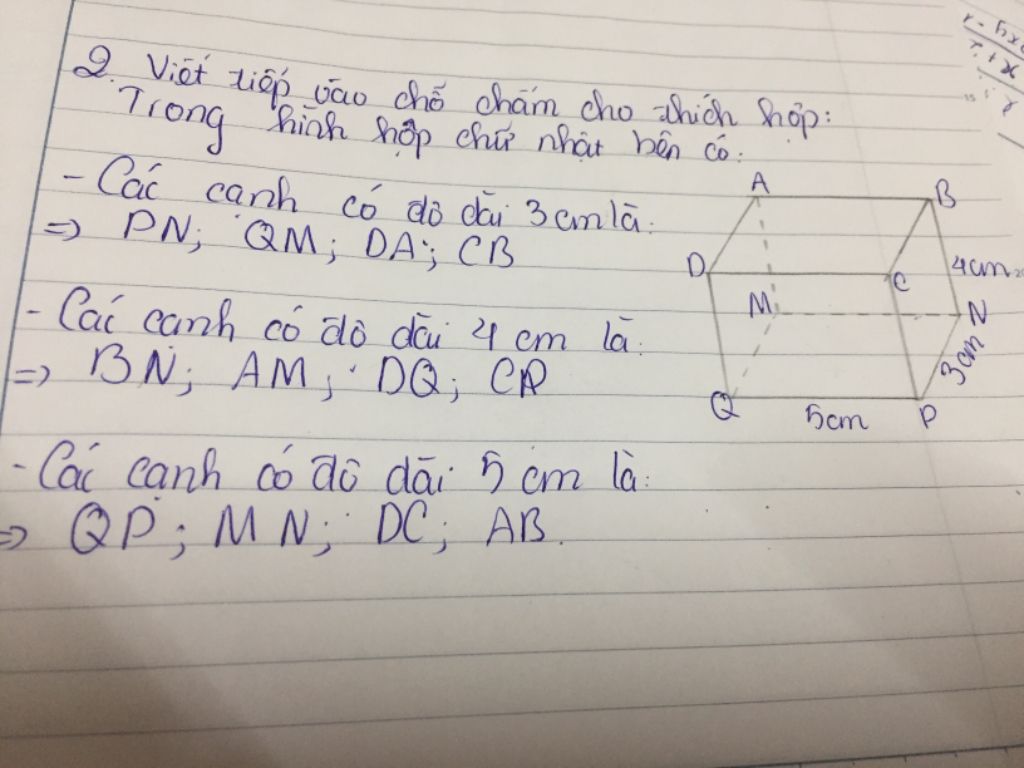 2. Viết tiếp vào chỗ chấm cho thích hợp:
Trong hình hộp chữ nhật bên có:
- Các cạnh có độ dài 3cm là:
=> PN; QM; DA; CB
- Các cạnh có độ dài 4 cm là:
=> BN; AM; DQ; CP
- Các cạnh có độ dài 5 cm là:
=> QP; MN; DC; AB.
A
B
D
C
4cm
M
N
3cm
Q
5cm
P